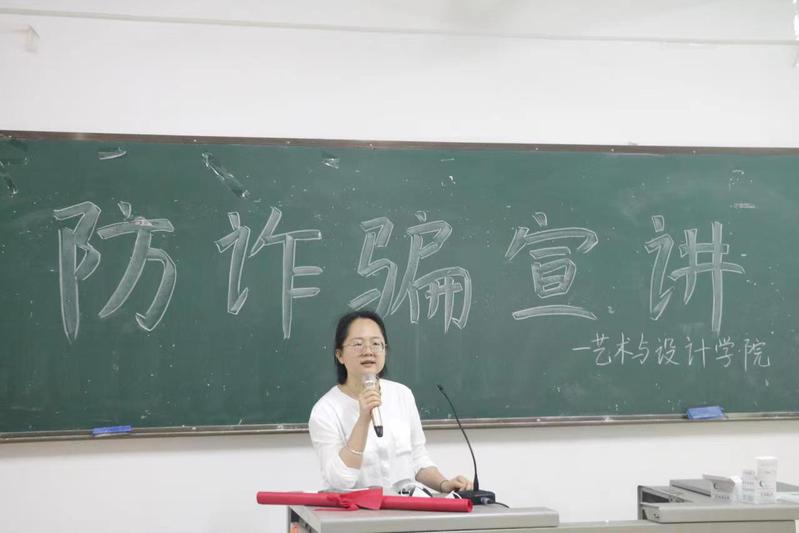 防诈骗宣讲
—艺术与设计学院